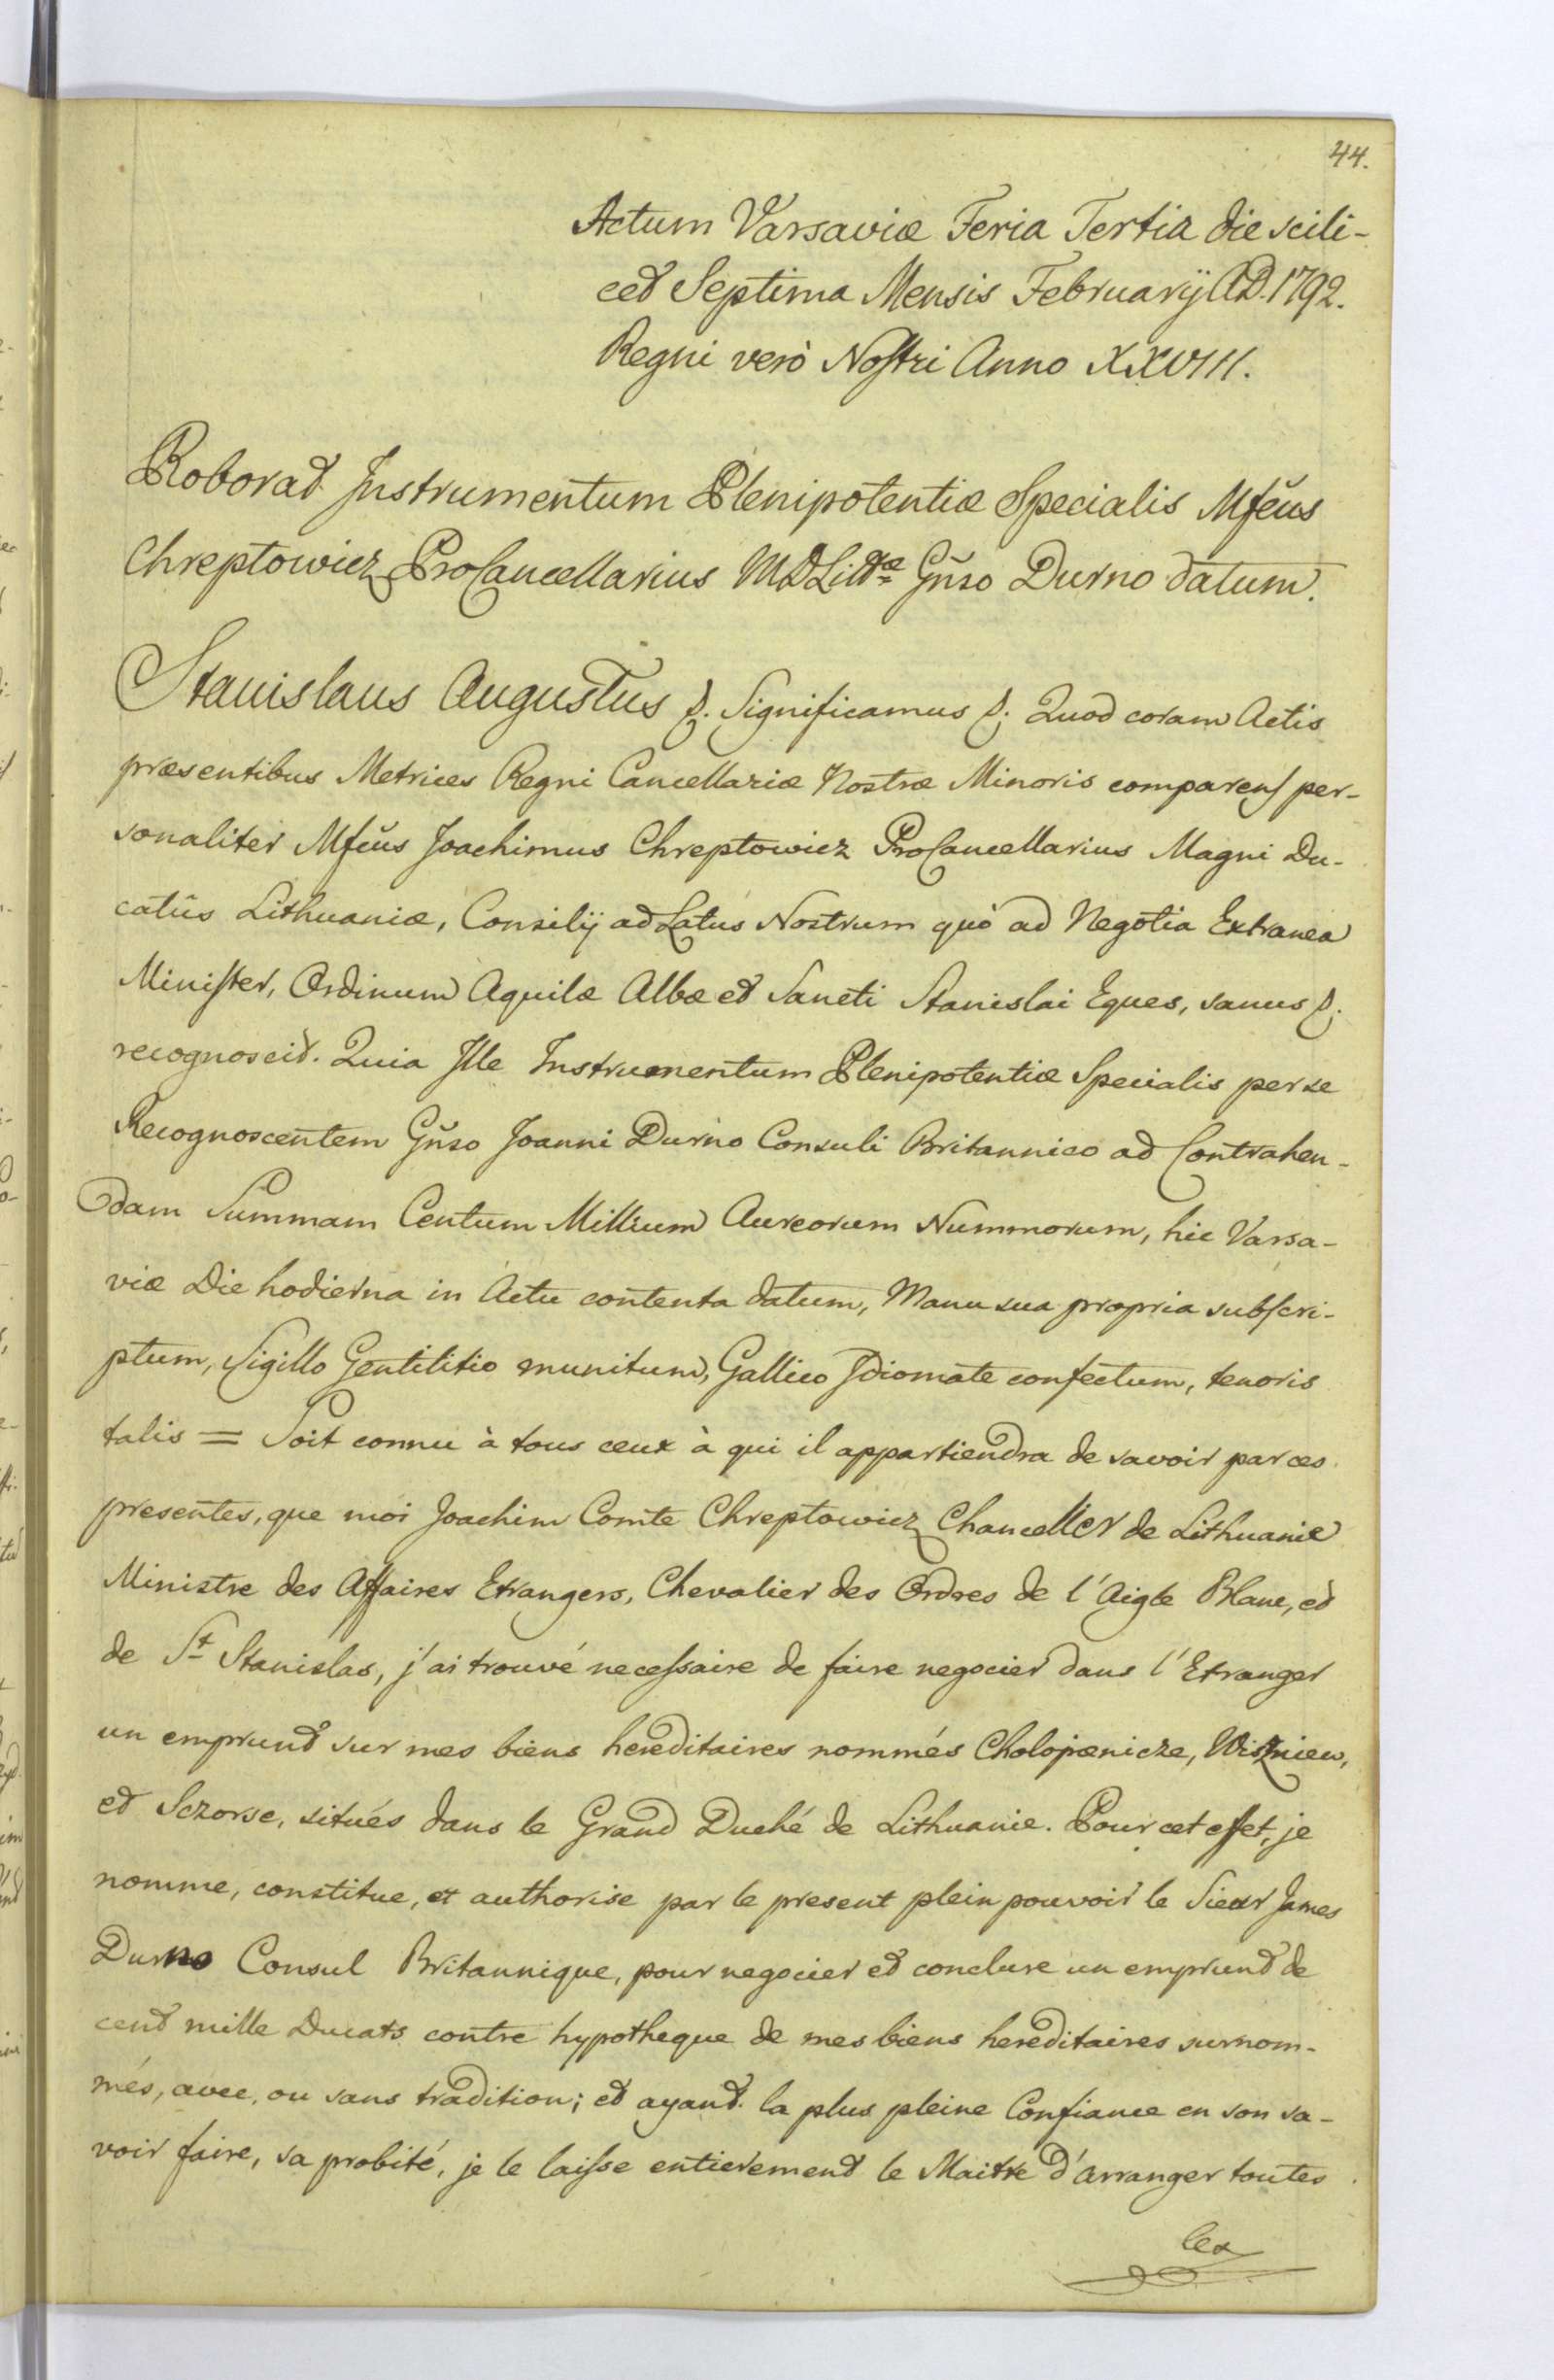 44.
Actum Varsaviæ Feria Tertia die scili-
cet Septima Mensis Februarÿ AD. 1792.
Regni verò Nostri Anno XXVIII.
Roborat Instrumentum Plenipotentiæ Specialis Mfcŭs
Chreptowicz ProCancellarius MDLittæ Gñso Durno datum.
Stanislaus Augustus &. Significamus &. Quod coram Actis
præsentibus Metrices Regni Cancellariæ Nostræ Minoris comparens per-
sonaliter Mfcŭs Joachimus Chreptowicz ProCancellarius Magni Du-
catûs Lithuaniæ, Consilÿ ad Latus Nostrum quò ad Negotia Extranea
Minister, Ordinum Aquilæ Albæ et Sancti Stanislai Eques, sanus &.
recognoscit. Quia Ille Instrumentum Plenipotentiæ Specialis per se
Recognoscentem Gñso Joanni Durno Consuli Britannico ad Contrahen-
dam Summam Centum Millium Aureorum Nummorum, hic Varsa-
viæ Die hodierna in Actu contenta datum, Manu sua propria subscri-
ptum, Sigillo Gentilitio munitum, Gallico Idiomate confectum, tenoris
talis = Soit connu à tous ceux à qui il appartiendra de savoir par ces
presentes, que moi Joachim Comte Chreptowicz Chanceller de Lithuanie
Ministre des Affaires Etrangers, Chevalier des Ordres de l'Aigle Blanc, et
de St Stanislas, j'ai trouvé necessaire de faire negocier dans l'Etranger
un emprunt sur mes biens hereditaires nommés Cholopænicze, Wiszniew,
et Sczorse, situés dans le Grand Duché de Lithuanie. Pour cet effet, je
nomme, constitue, et authorise par le present plein pouvoir le Sieur James
Durno Consul Britannique, pour negocier et conclure un emprunt de
cent mille Ducats contre hypotheque de mes biens hereditaires surnom-
més, avec, ou sans tradition; et ayant la plus pleine Confiance en son sa-
voir faire, sa probité, je le laisse entierement le Maitre d'arranger toutes
les